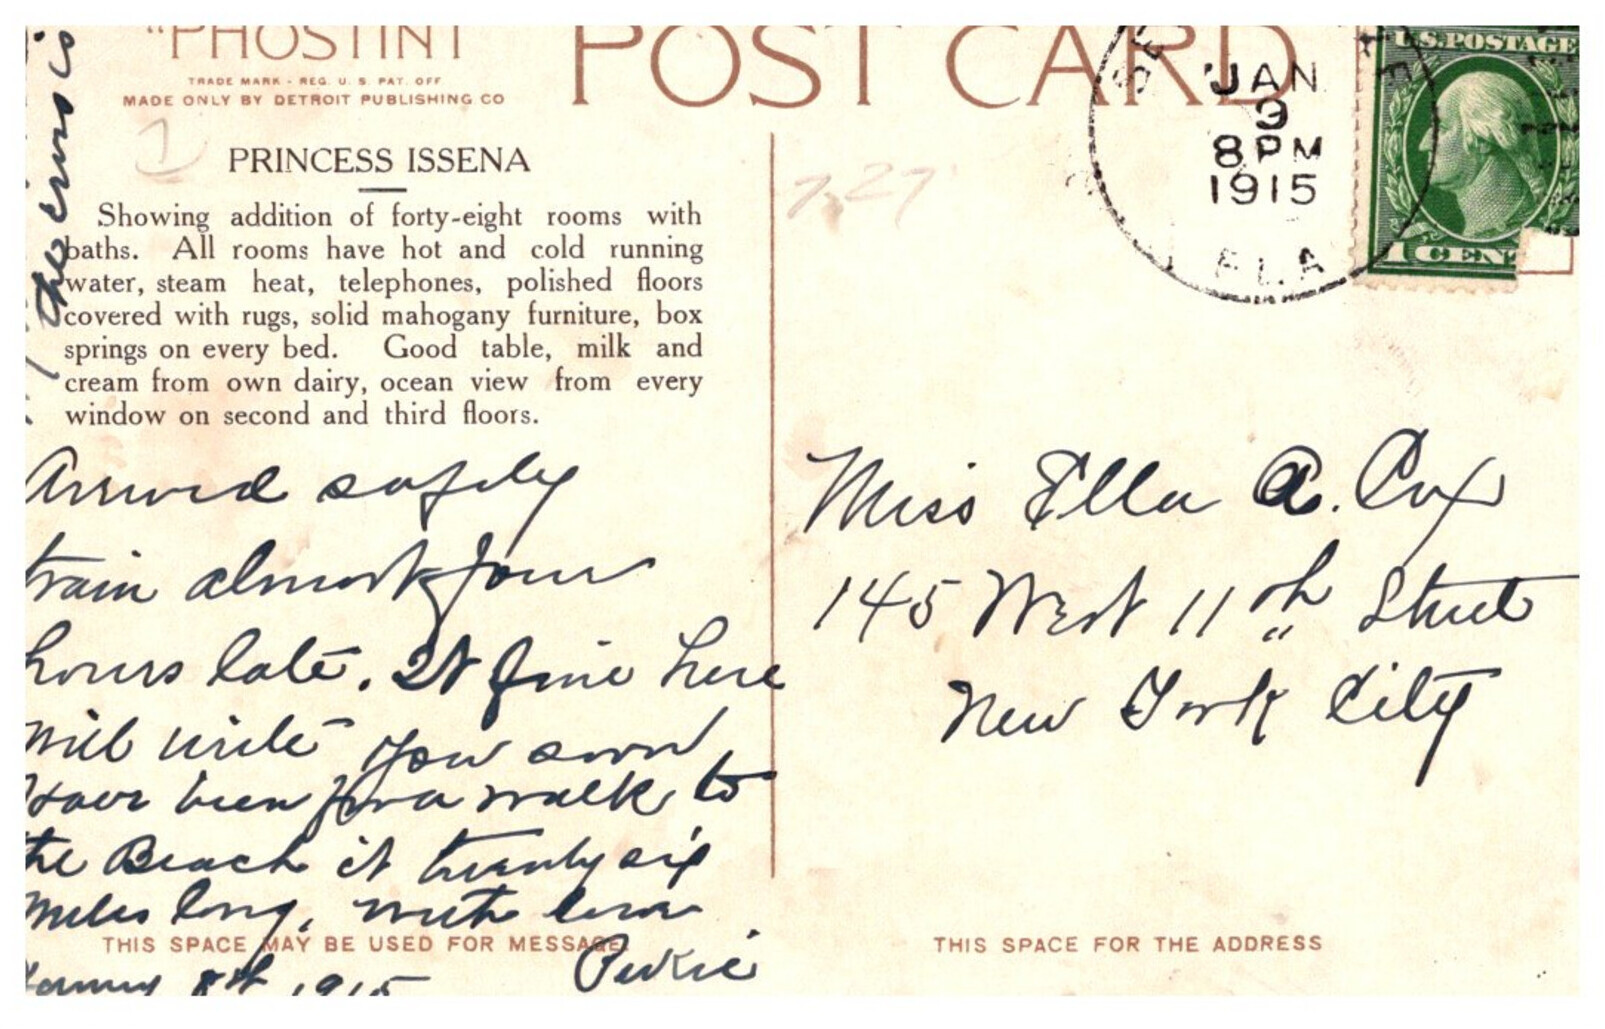 "PHOSTINT
TRADE MARK - REG. U. S. PAT. OFF
MADE ONLY BY DETROIT PUBLISHING CO
POST CARD
JAN
9
8 PM
1915
FLA
U.S. POSTAGE
1 CENT
7.27
PRINCESS ISSENA
Showing addition of forty-eight rooms with
baths. All rooms have hot and cold running
water, steam heat, telephones, polished floors
covered with rugs, solid mahogany furniture, box
springs on every bed. Good table, milk and
cream from own dairy, ocean view from every
window on second and third floors.
Arrived safely
train almost four
hours late. It fine here
Will write you soon
Have been for a walk to
the Beach it twenty six
miles long, with love
January 8th 1915
Miss Ella A. Cox
145 West 11th Street
New York City
THIS SPACE MAY BE USED FOR MESSAGE.
THIS SPACE FOR THE ADDRESS